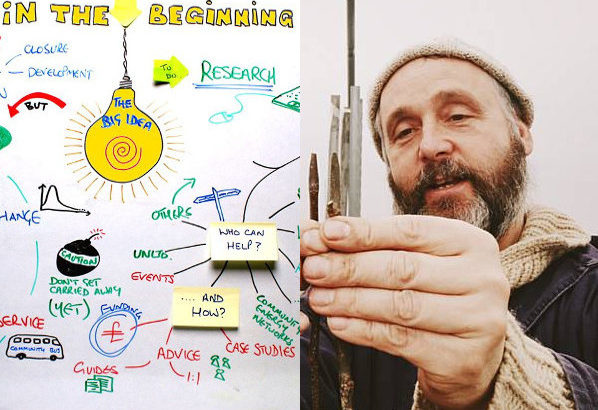 IN THE BEGINNING
CLOSURE
DEVELOPMENT
BUT
THE
BIG IDEA
TO
DO
RESEARCH
HANGE
CAUTION
DON'T GET
CARRIED AWAY
(YET)
OTHERS
WHO CAN
HELP?
UNLTD.
EVENTS
.... AND
HOW?
FUNDING
£
COMMUNITY
ENERGY
NETWORKS
SERVICE
COMMUNITY BUS
GUIDES
ADVICE
1:1
CASE STUDIES